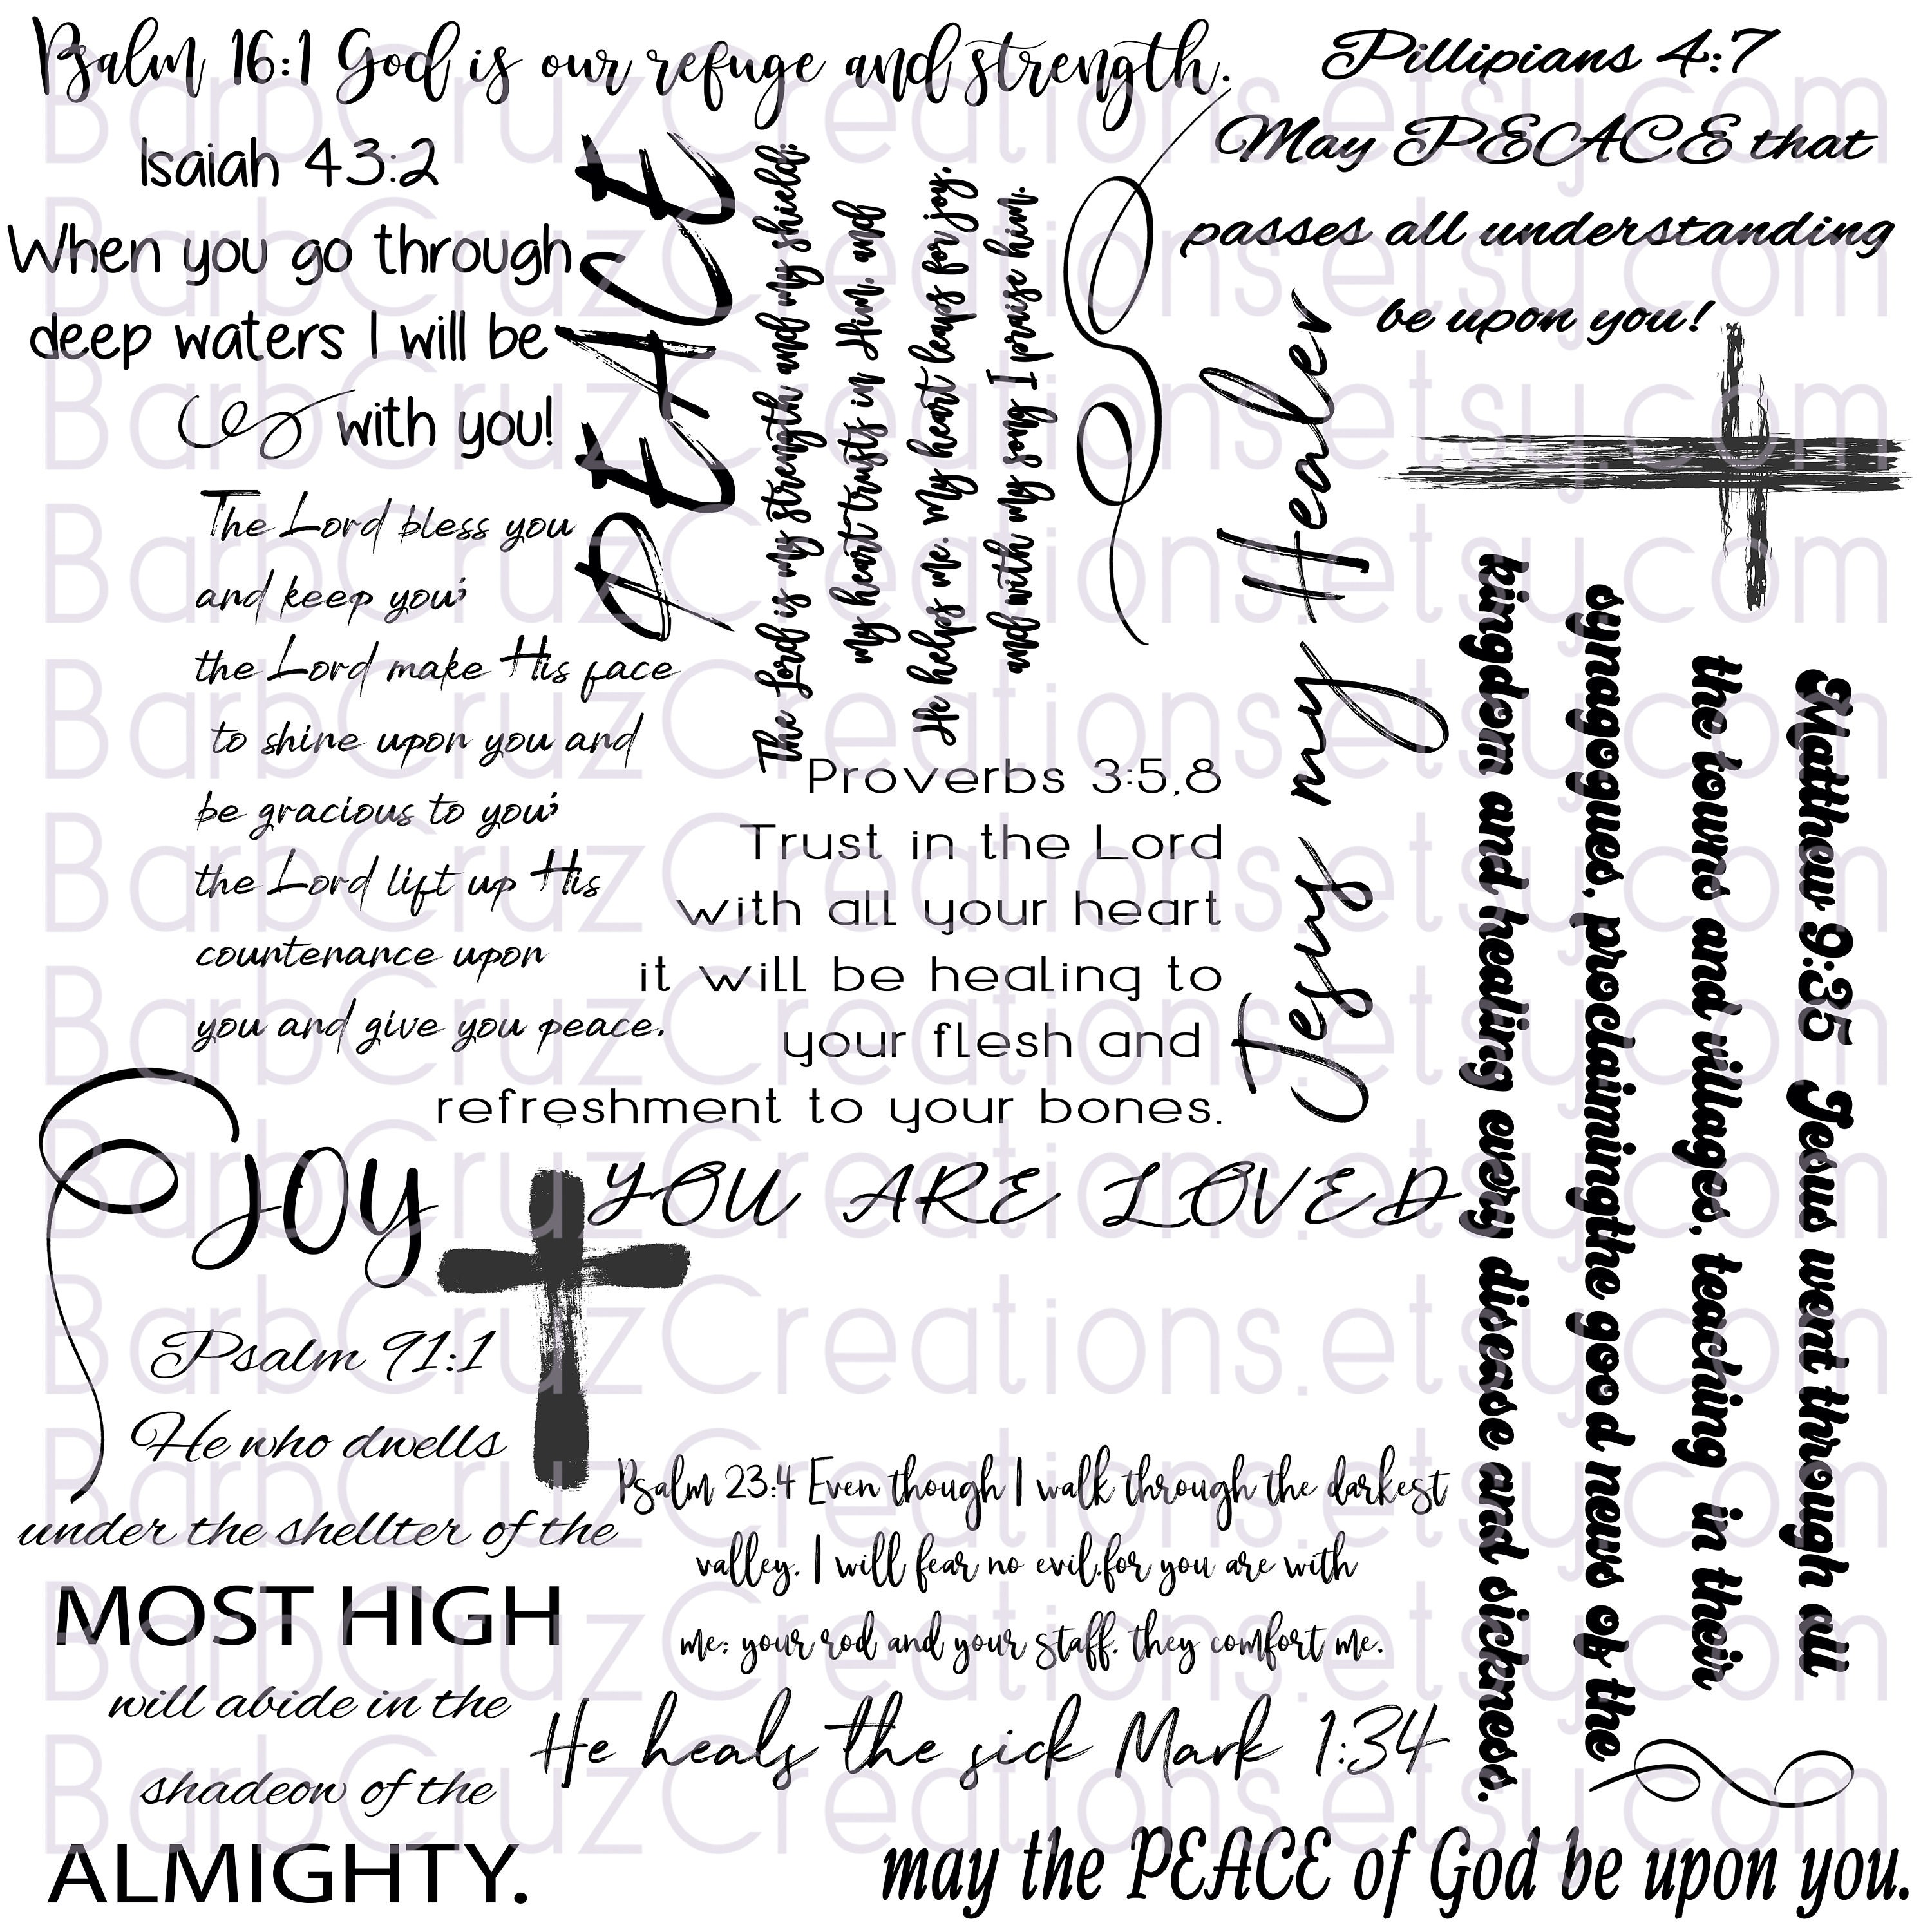 Psalm 16:1 God is our refuge and strength.
Isaiah 43:2
When you go through
deep waters I will be
with you!
PEACE
The Lord is my strength and my shield;
my heart trusts in Him, and
He helps me. My heart leaps for joy,
and with my song I praise him.
Pillipians 4:7
May PEACE that
passes all understanding
be upon you!
The Lord bless you
and keep you;
the Lord make His face
to shine upon you and
be gracious to you;
the Lord lift up His
countenance upon
you and give you peace.
Proverbs 3:5,8
Trust in the Lord
with all your heart
it will be healing to
your flesh and
refreshment to your bones.
Jesus my Healer
Matthew 9:35 Jesus went through all
the towns and villages, teaching in their
synagogues, proclaimingthe good news of the
kingdom and healing every disease and sickness.
JOY
YOU ARE LOVED
Psalm 91:1
He who dwells
under the shellter of the
MOST HIGH
will abide in the
shadeow of the
ALMIGHTY.
Psalm 23:4 Even though I walk through the darkest
valley, I will fear no evil,for you are with
me; your rod and your staff, they comfort me.
He heals the sick Mark 1:34
may the PEACE of God be upon you.
BarbCruzCreations.etsy.com
BarbCruzCreations.etsy.com
BarbCruzCreations.etsy.com
BarbCruzCreations.etsy.com
BarbCruzCreations.etsy.com
BarbCruzCreations.etsy.com
BarbCruzCreations.etsy.com
BarbCruzCreations.etsy.com
BarbCruzCreations.etsy.com
BarbCruzCreations.etsy.com
BarbCruzCreations.etsy.com
BarbCruzCreations.etsy.com